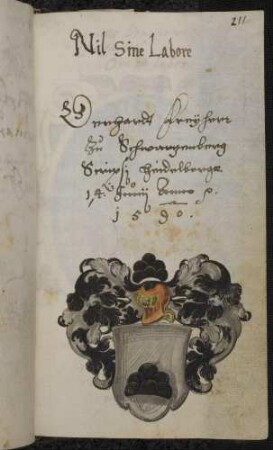 211
Nil Sine Labore
Freyherr
Zu Schwarzenberg
Scripsi Heidelbergæ
14 Junij Anno
1590.